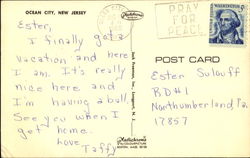 OCEAN CITY, NEW JERSEY
Ester,
I finally got a
vacation and here
I am. It's really
nice here and
I'm having a ball.
See you when I
get home.
Love,
Taffy
PRAY
FOR
PEACE
POST CARD
Ester Sulouff
RD#1
Northumberland, Pa.
17857